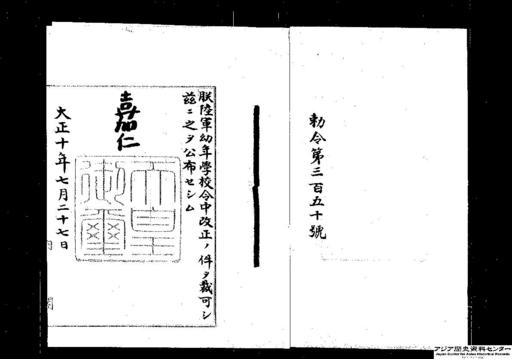 勅令第三百五十號
朕陸軍幼年學校令中改正ノ件ヲ裁可シ
茲ニ之ヲ公布セシム
嘉仁
天皇御璽
大正十年七月二十七日
アジア歴史資料センター
Japan Center for Asian Historical Records